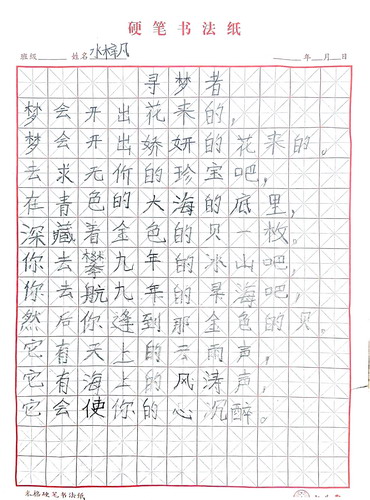 硬笔书法纸
班级 姓名 年 月 日
寻梦者
梦会开出花来的，
梦会开出娇妍的花来的。
去求无价的珍宝吧，
在青色的大海的底里，
深藏着金色的贝一枚。
你去攀九年的冰山吧，
你去航九年的旱海吧，
然后你逢到那金色的贝。
它有天上的云雨声，
它有海上的风涛声，
它会使你的心沉醉。
米格硬笔书法纸